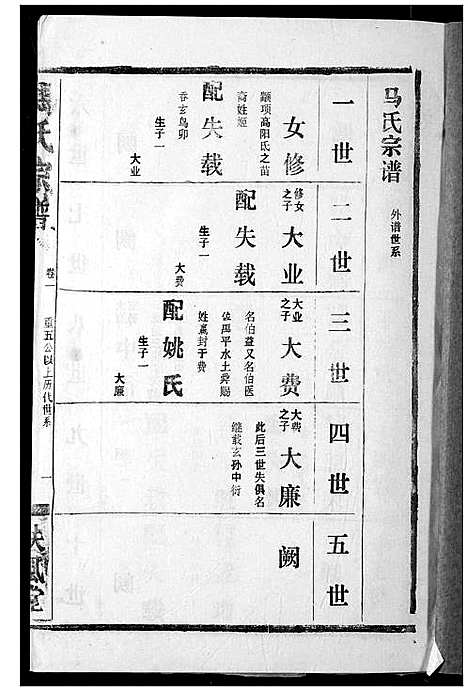 马氏宗谱
外谱世系
一世
女修
颛顼高阳氏之苗
裔姓姬
配失载
吞玄鸟卵
生子一
大业
二世
女修之子
大业
配失载
生子一
大费
三世
大业之子
大费
名伯益又名伯医
佐禹平水土舜赐
姓嬴封于费
配姚氏
生子一
大廉
四世
大费之子
大廉
此后三世失俱名
继载玄孙中衍
五世
阙
马氏宗谱
卷一
重五公以上历代世系
一
扶风堂